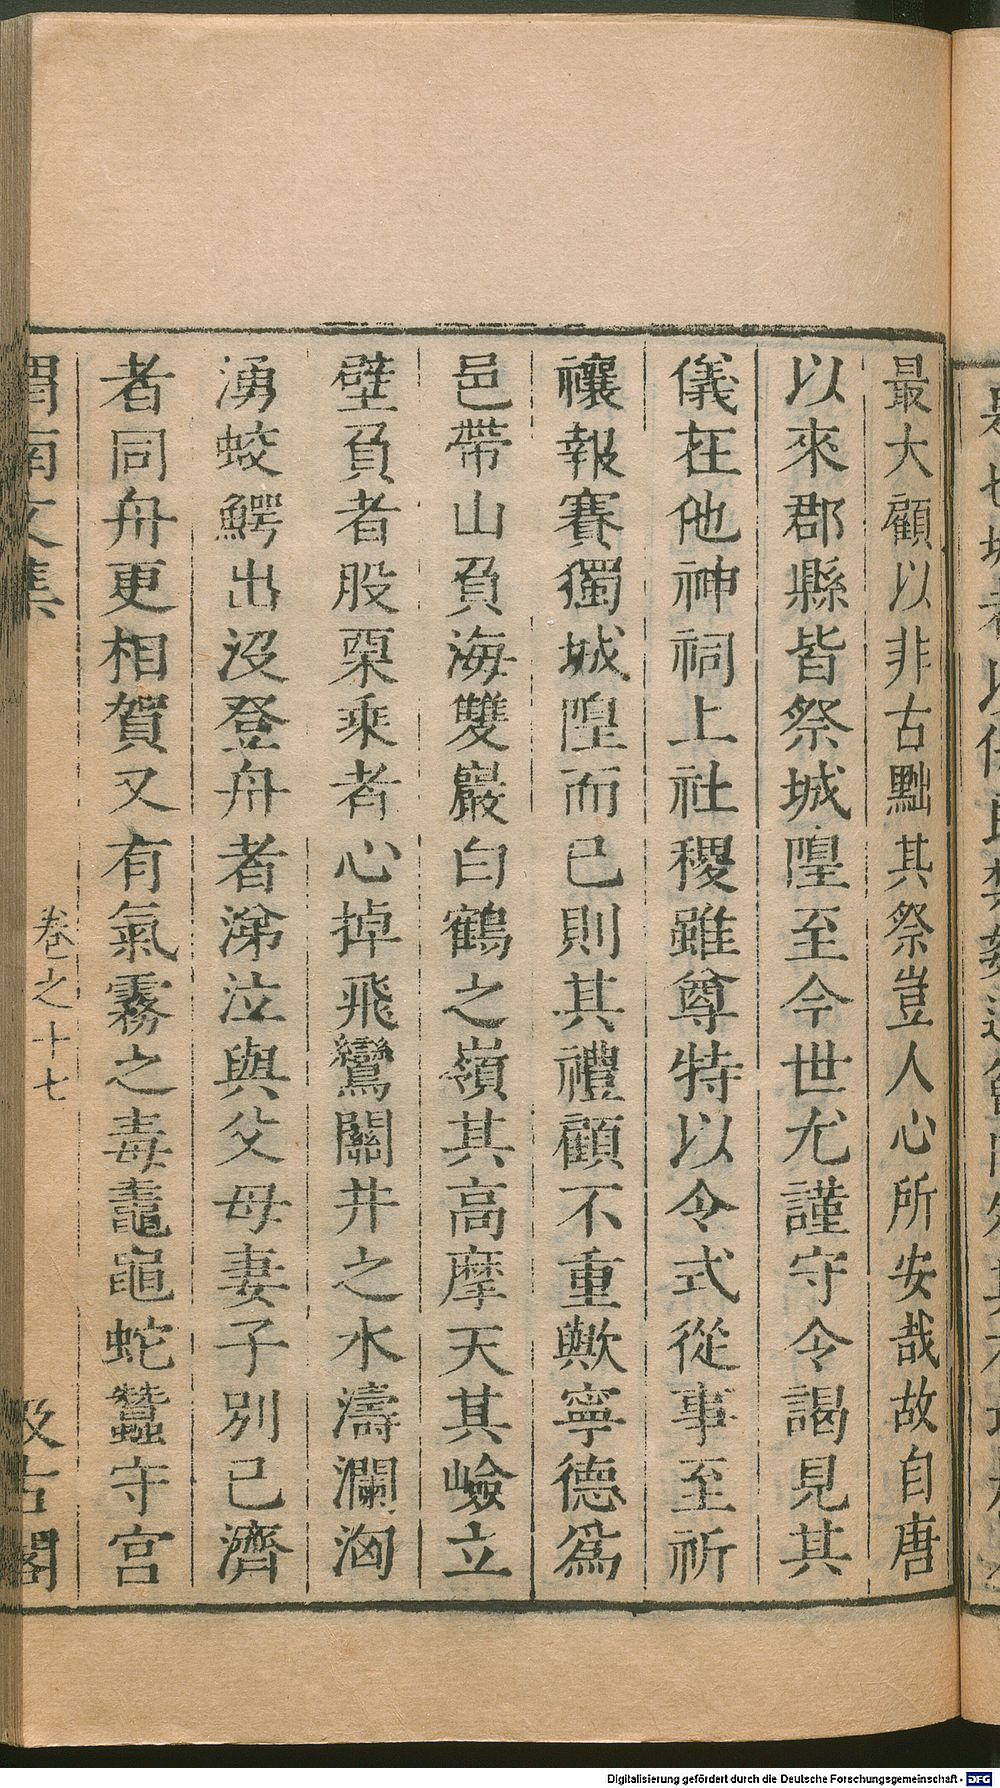 最大顧以非古黜其祭豈人心所安哉故自唐
以來郡縣皆祭城隍至今世尤謹守令謁見其
儀在他神祠上社稷雖尊特以令式從事至祈
禳報賽獨城隍而已則其禮顧不重歟寧德爲
邑帶山負海雙巖白鶴之嶺其高摩天其嶮立
壁負者股栗乘者心掉飛鸞關井之水濤瀾洶
湧蛟鰐出沒登舟者涕泣與父母妻子別已濟
者同舟更相賀又有氣霧之毒鼃黽蛇蠶守宮
渭南文集 卷之十七 汲古閣
Digitalisierung gefördert durch die Deutsche Forschungsgemeinschaft - DFG